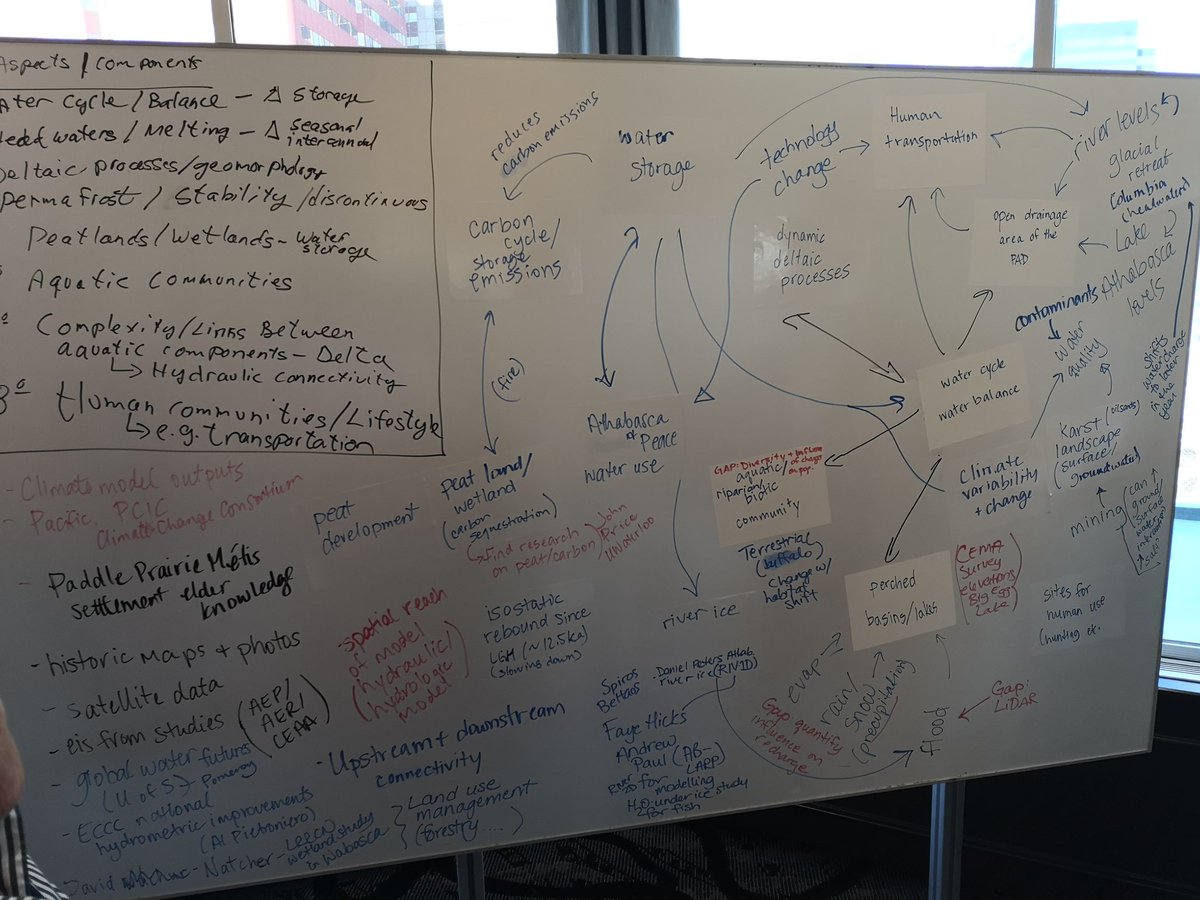 Aspects / Components
ater Cycle / Balance - Δ Storage
Head waters / Melting - Δ seasonal
interannual
Deltaic processes/geomorphology
Permafrost / Stability / discontinuous
Peatlands / Wetlands - water
storage
Aquatic Communities
Complexity / Links Between
aquatic components - Delta
↳ Hydraulic connectivity
3° Human communities / Lifestyle
↳ e.g. transportation
- Climate model outputs
- Pacific PCIC
Climate Change Consortium
- Paddle Prairie Métis
settlement elder
knowledge
- historic maps + photos
- satellite data
- eis from studies (AEP/
AER/
CEAA)
- global water futures
(U of S) - Pomeroy
- ECCC national
hydrometric improvements
(Al Pietroniero)
David
- Natcher - Leech
wetland study
in Wabasca
Land use
management
(forestry ....)
peat
development
- spatial reach
of model
(hydraulic/
hydrologic
model)
- Upstream + downstream
connectivity
reduces
carbon emissions
Carbon
cycle/
storage
emissions
(fire)
peat land/
wetland
(carbon
sequestration)
↳ Find research
on peat/carbon
John
Price
UWaterloo
isostatic
rebound since
LGM (~12.5ka)
(slowing down)
water
storage
Athabasca
+ Peace
water use
river ice
Spiros
Beltaos
- Daniel Peters Athab.
river ice (RIV1D)
Faye Hicks
Andrew
Paul (AB-
LARP)
River
2D for modelling
H2O-under ice study
for fish
technology
change
Human
transportation
river levels
glacial
retreat
Columbia
(headwaters)
Lake
Athabasca
levels
open drainage
area of the
PAD
dynamic
deltaic
processes
contaminants
water
quality
shifts
water charge
to later
in the
year
water cycle
water balance
Karst (oilsands)
landscape
surface/
groundwater)
Climate
variability
+ change
mining
can
ground/
surface
water
interaction
↑ salt
GAP: Diversity + influence
of change
on pop.
aquatic/
riparian/
biotic
community
Terrestrial
(buffalo)
change w/
habitat
shift
perched
basins/lakes
(CEMA
survey
elevations
Big Egg
Lake)
sites for
human use
(hunting etc.
evap
rain/
snow
(precipitation)
Gap quantify
influence on
recharge
Flood
Gap:
LiDAR